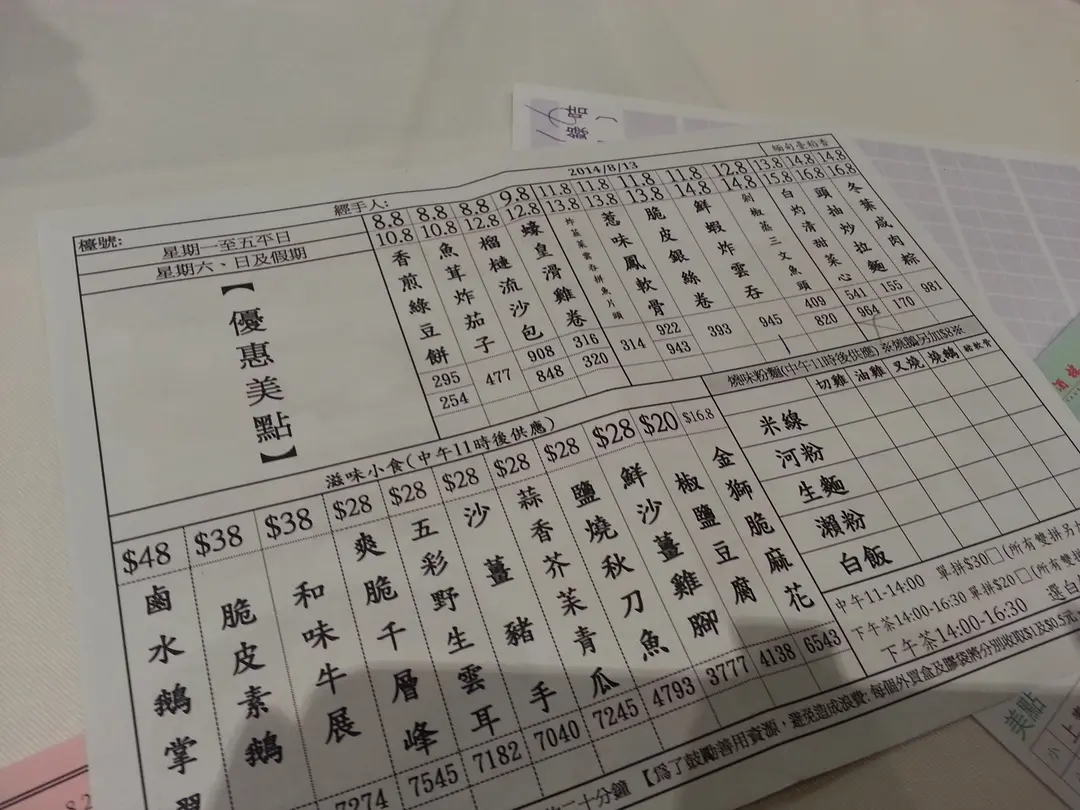 2014/8/13
檯號:
經手人:
星期一至五平日
8.8 8.8 8.8 9.8 11.8 11.8 11.8 11.8 12.8 13.8 14.8 14.8
星期六、日及假期
10.8 10.8 12.8 12.8 13.8 13.8 13.8 14.8 14.8 15.8 16.8 16.8
【優惠美點】
香煎綠豆餅
魚茸炸茄子
榴槤流沙包
蠔皇滑雞卷
惹味鳳軟骨
脆皮銀絲卷
鮮蝦炸雲吞
剁椒蒸三文魚頭
白灼清甜菜心
頭抽炒拉麵
冬葉咸肉粽
295 477 908 316 314 922 393 945 409 541 155 981
254 848 320 943 820 964 170
滋味小食(中午11時後供應)
$48 $38 $38 $28 $28 $28 $28 $28 $28 $20 $16.8
鹵水鵝掌翼
脆皮素鵝
和味牛展
爽脆千層峰
五彩野生雲耳
沙薑豬手
蒜香芥茉青瓜
鹽燒秋刀魚
鮮沙薑雞腳
椒鹽豆腐
金獅脆麻花
7274 7545 7182 7040 7245 4793 3777 4138 6543
燒味粉麵(中午11時後供應) ※燒鵝另加$8※
切雞 油雞 叉燒 燒鵝
米線
河粉
生麵
瀨粉
白飯
中午11-14:00 單拼$30□(所有雙拼另加
下午茶14:00-16:30 單拼$20□(所有雙
下午茶14:00-16:30 選白
二十分鐘 【為了鼓勵善用資源,避免造成浪費:每個外買盒及膠袋將分別收取$1及$0.5元
美點
小
上